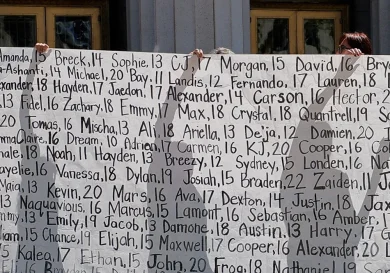 Amanda, 15 Breck, 14 Sophie, 13 CJ, 17 Morgan, 15 David, 16 Bry
a-Ashanti, 14 Michael, 20 Bay, 11 Landis, 12 Fernando, 17 Lauren, 18
exander, 18 Hayden, 17 Jaedon, 17 Alexander, 14 Carson, 16 Hector, 2
13 Fidel, 16 Zachary, 18 Emmy, Max, 18 Crystal, 18 Quantrell, 19
20 Tomas, 16 Mischa, 13 Ali, 18 Ariella, 13 De'ja, 12 Damien, 20
Claire, 16 Dream, 10 Adrien, 17 Carmen, 16 KJ, 20 Cooper, 16
18 Noah, 11 Hayden, 13 Breezy, 12 Sydney, 15 Londen, 16
Kaylie, 16 Vanessa, 18 Dylan, 19 Josiah, 15 Braden, 22 Zaiden, 11
Maia, 13 Kevin, 20 Mars, 16 Ava, 17 Dexton, 14 Justin, 18 Jax
13 Naquavious, 16 Marcus, 15 Lamont, 16 Sebastian, 16 Amber, 1
mmy, 13 Emily, 19 Jacob, 13 Damone, 18 Austin, 13 Harry,
15 Chance, 11 Elijah, 15 Maxwell, 17 Cooper, 16 Alexander, 20
15 Kalea, 17 Ethan, 15 John, 20 Frog, 18 Nathaniel, 19